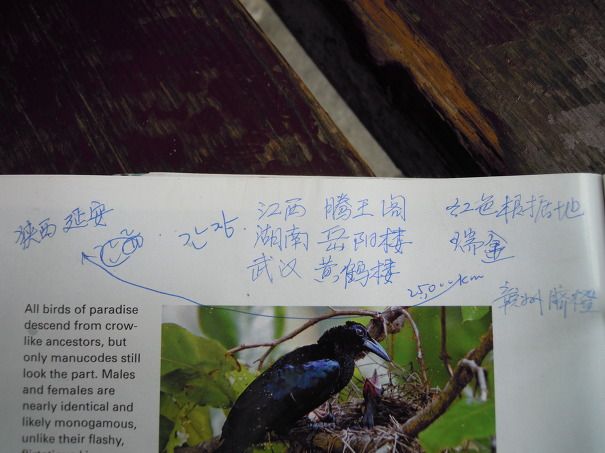 陕西 延安
江西 腾王阁 红色根据地
湖南 岳阳楼 瑞金
武汉 黄鹤楼
25000km
赣州脐橙
All birds of paradise
descend from crow-
like ancestors, but
only manucodes still
look the part. Males
and females are
nearly identical and
likely monogamous,
unlike their flashy,